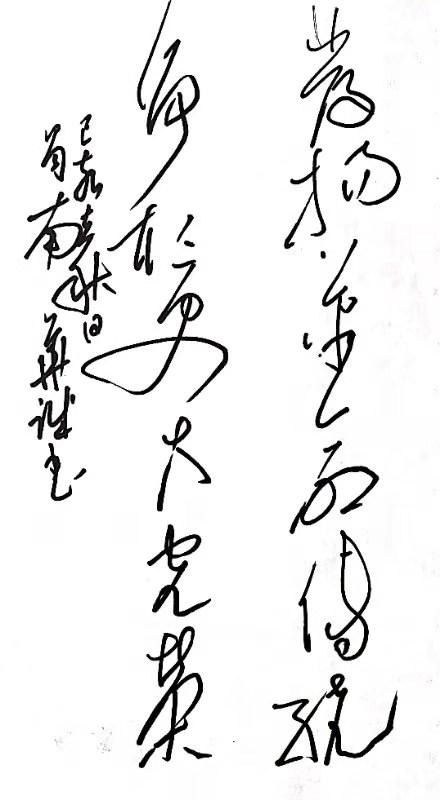 发扬革命传统
争取更大光荣
己亥秋日
南華诚书